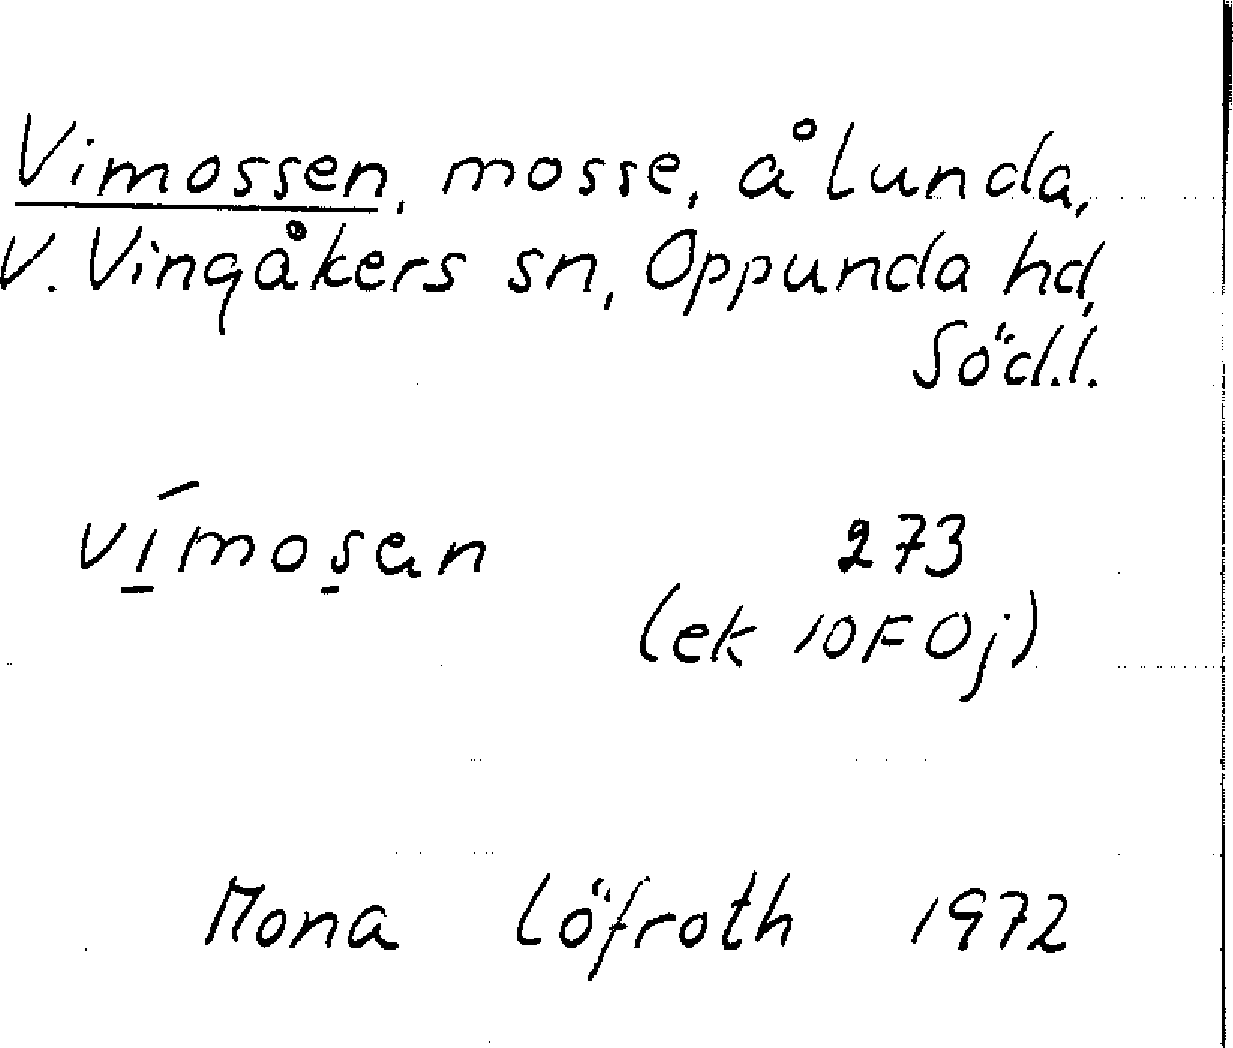 Vimossen, mosse, å Lunda,
V. Vingåkers sn, Oppunda hd,
Söd.l.
vímosan 273
(ek 10F0j)
Mona Löfroth 1972